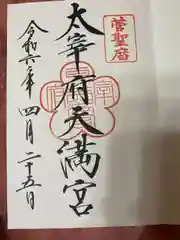 菅聖廟
太宰府天満宮
令和六年四月二十五日